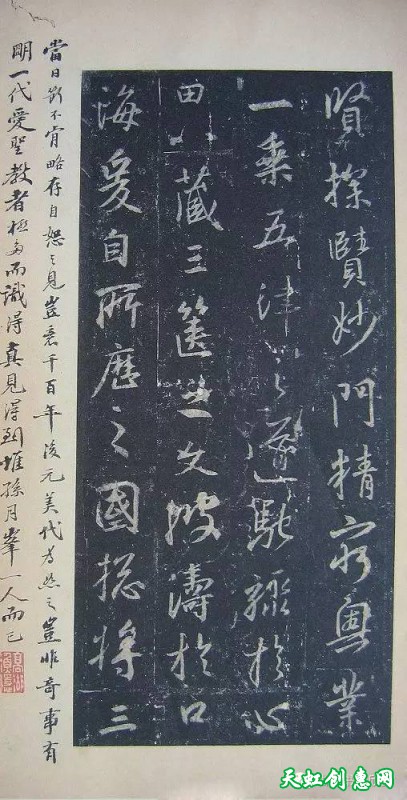 賢探賾妙門精窮奧業
一乘五律之道馳驟於心
田八藏三篋之文波濤於口
海爰自所歷之國揔將三
當日斷不肯略存自恕之見豈意千百年後元美代為恕之豈非奇事有
明一代愛聖教者極多而識得真見得到惟孫月峯一人而已
天虹创惠网